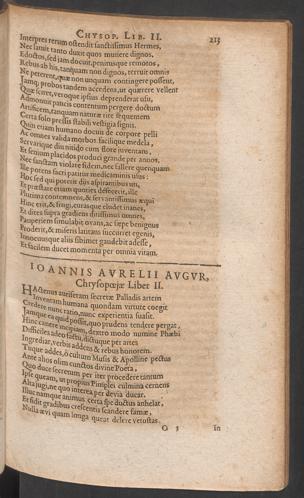 CHYSOP. LIB. II. 213
Interpres rerum ostendit sanctissimus Hermes,
Nec sanuit tanto duxit quos munere dignos,
Edoctos, sed jam docuit, penitusque remotos,
Rebus ab his, tanquam non dignos, terruit omnis
Ne peterent, quæ non unquam contingere possent,
Jamq; probos tandem accedens, ut quærere vellent
Quæ sciret, veroque ipsus deprenderat usu,
Admonuit paucis contentum pergere doctum
Artificem, tanquam naturæ rite sequentem
Certa solo pressis stabili vestigia signis.
Quin etiam humano docuit de corpore pelli
Ac omnes valida morbos facilique medela,
Servarique diu nitido cum flore juventam,
In senium placidos produci grande per annos,
Nec sanctam violare fidem, nec fallere quenquam
Ille potens sacri patitur medicaminis usus:
Hoc sed qui poterit dijs aspirantibus uti,
Et præstare etiam
Plurima contemnens, & servantissimus æqui
Hinc erit, & frugi, curasque eludet inanes,
Et dites supra gradiens ditissimus omnes,
Pauperiem simulabit ovans, ac sæpe benignus
Proderit, & miseris latitans succurret egenis,
Innocuusque aliis sibimet gaudebit adesse,
Et facilem ducet momenta per omnia vitam.
IOANNIS AVRELII AVGVR,
Chrysopœjæ Liber II.
HActenus auriferam secretæ Palladis artem
Inventam humana quondam virtute coegit
Credere nunc ratio, nunc experientia suasit.
Jamque ea quid possit, quo prudens tendere pergat,
Hinc canere incipiam, dextro modo numine Phœbi
Difficiles adeo factu, dictuque per artes
Ingrediar, verbis addens & rebus honorem.
Tuque addes, ô cultum Musis & Apolline pectus
Ante alios olim cunctos divine Poeta,
Quo duce secretum per iter procedere tantum
Ipse queam, ut propius Pimplei culmina cernens
Alta jugi, ne quo interea per devia ducar.
Illuc namque animus certa spe ductus anhelat,
Et fidit gradibus crescentis scandere famæ,
Nulla ævi quam longa queat delere vetustas.
O 3 in